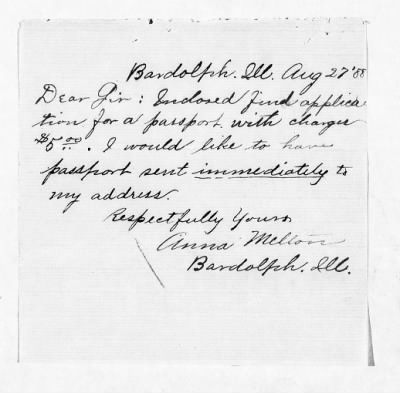 Bardolph. Ill. Aug 27 '88
Dear Sir: Enclosed find applica
tion for a passport with charges
$5.00. I would like to have
passport sent immediately to
my address.
Respectfully Yours
Anna Melton
Bardolph. Ill.